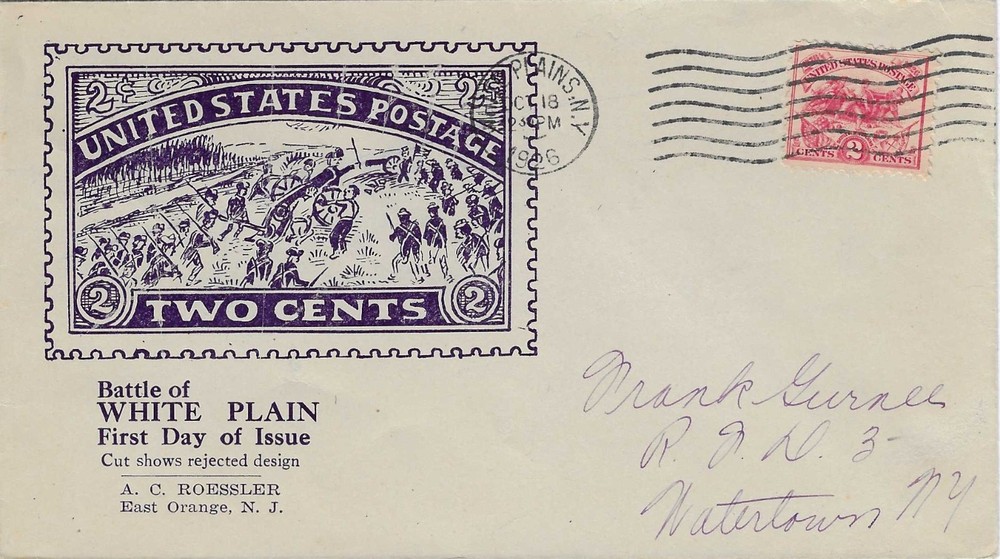 2¢ 2¢
UNITED STATES POSTAGE
2 TWO CENTS 2
PLAINS, N.Y.
OCT 18
230PM
1926
UNITED STATES POSTAGE
CENTS 2 CENTS
Battle of
WHITE PLAIN
First Day of Issue
Cut shows rejected design
A. C. ROESSLER
East Orange, N. J.
Frank Gurnee
R. F. D. 3
Watertown NY